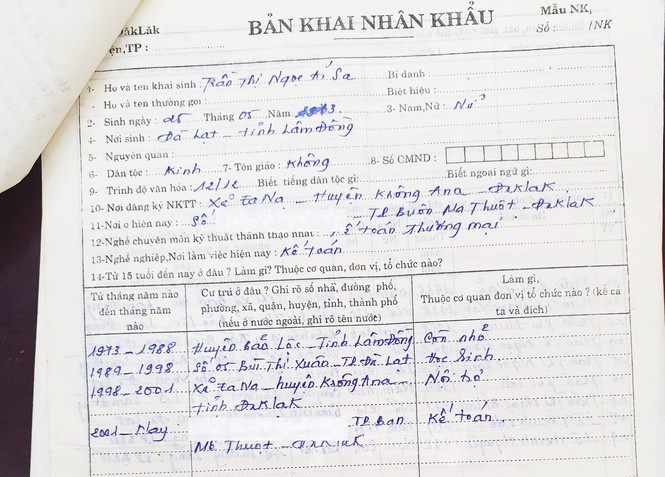 ĐăkLăk
BẢN KHAI NHÂN KHẨU
Mẫu NK,
ện,TP :
Số : /NK
1- Họ và tên khai sinh : Trần Thị Ngọc Ái Sa
Bí danh :
- Họ và tên thường gọi :
Biệt hiệu :
2- Sinh ngày : 25 Tháng 05 Năm 1973
3- Nam,Nữ : Nữ
4- Nơi sinh : Đà Lạt - tỉnh Lâm Đồng
5- Nguyên quán :
6- Dân tộc : Kinh 7- Tôn giáo : Không
8- Số CMND :
9- Trình độ văn hóa : 12/12 Biết tiếng dân tộc gì:
Biết ngoại ngữ gì:
10- Nơi đăng ký NKTT : Xã Ea Na - Huyện Krông Ana - ĐăkLăk
11- Nơi ở hiện nay : Số TP Buôn Ma Thuột - ĐăkLăk
12- Nghề chuyên môn kỹ thuật thành thạo nhất : Kế toán thương mại
13- Nghề nghiệp,Nơi làm việc hiện nay : Kế toán
14- Từ 15 tuổi đến nay ở đâu ? Làm gì? Thuộc cơ quan, đơn vị, tổ chức nào?
Từ tháng năm nào
đến tháng năm
nào
Cư trú ở đâu ? Ghi rõ số nhà, đường phố,
phường, xã, quận, huyện, tỉnh, thành phố
(nếu ở nước ngoài, ghi rõ tên nước)
Làm gì,
Thuộc cơ quan đơn vị tổ chức nào ? (kể cả
ta và địch)
1973 - 1988 Huyện Bảo Lộc - Tỉnh Lâm Đồng Còn nhỏ
1989 - 1998 Số 05 Bùi Thị Xuân - TP Đà Lạt Học Sinh
1998 - 2001 Xã Ea Na - huyện Krông Ana - Nội trợ
tỉnh ĐăkLăk
2001 - Nay TP Ban Kế toán
Mê Thuột - ĐăkLăk